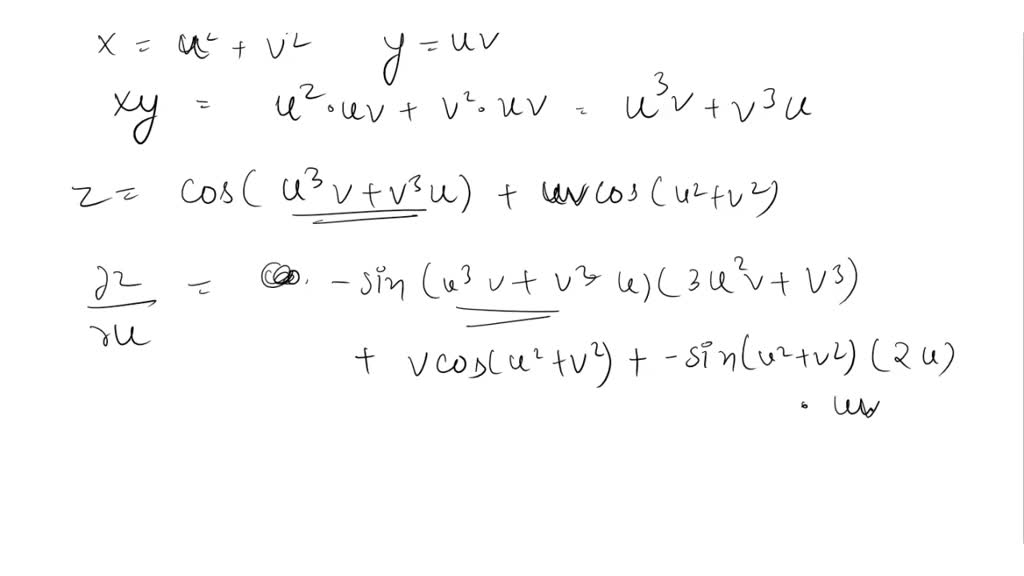 x = u² + v² y = uv
xy = u²·uv + v²·uv = u³v + v³u
z = cos(u³v+v³u) + uv cos(u²+v²)
∂z/∂u = -sin(u³v + v³u)(3u²v + v³)
+ v cos(u²+v²) + -sin(u²+v²)(2u)
· uv